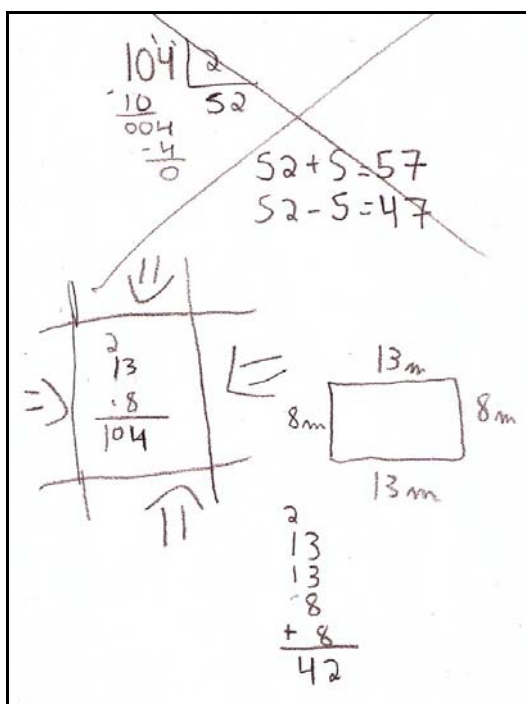 104 2
-10 52
004
-4
0
52+5=57
52-5=47
2
13
.8
104
13m
8m 8m
13m
2
13
13
8
+ 8
42